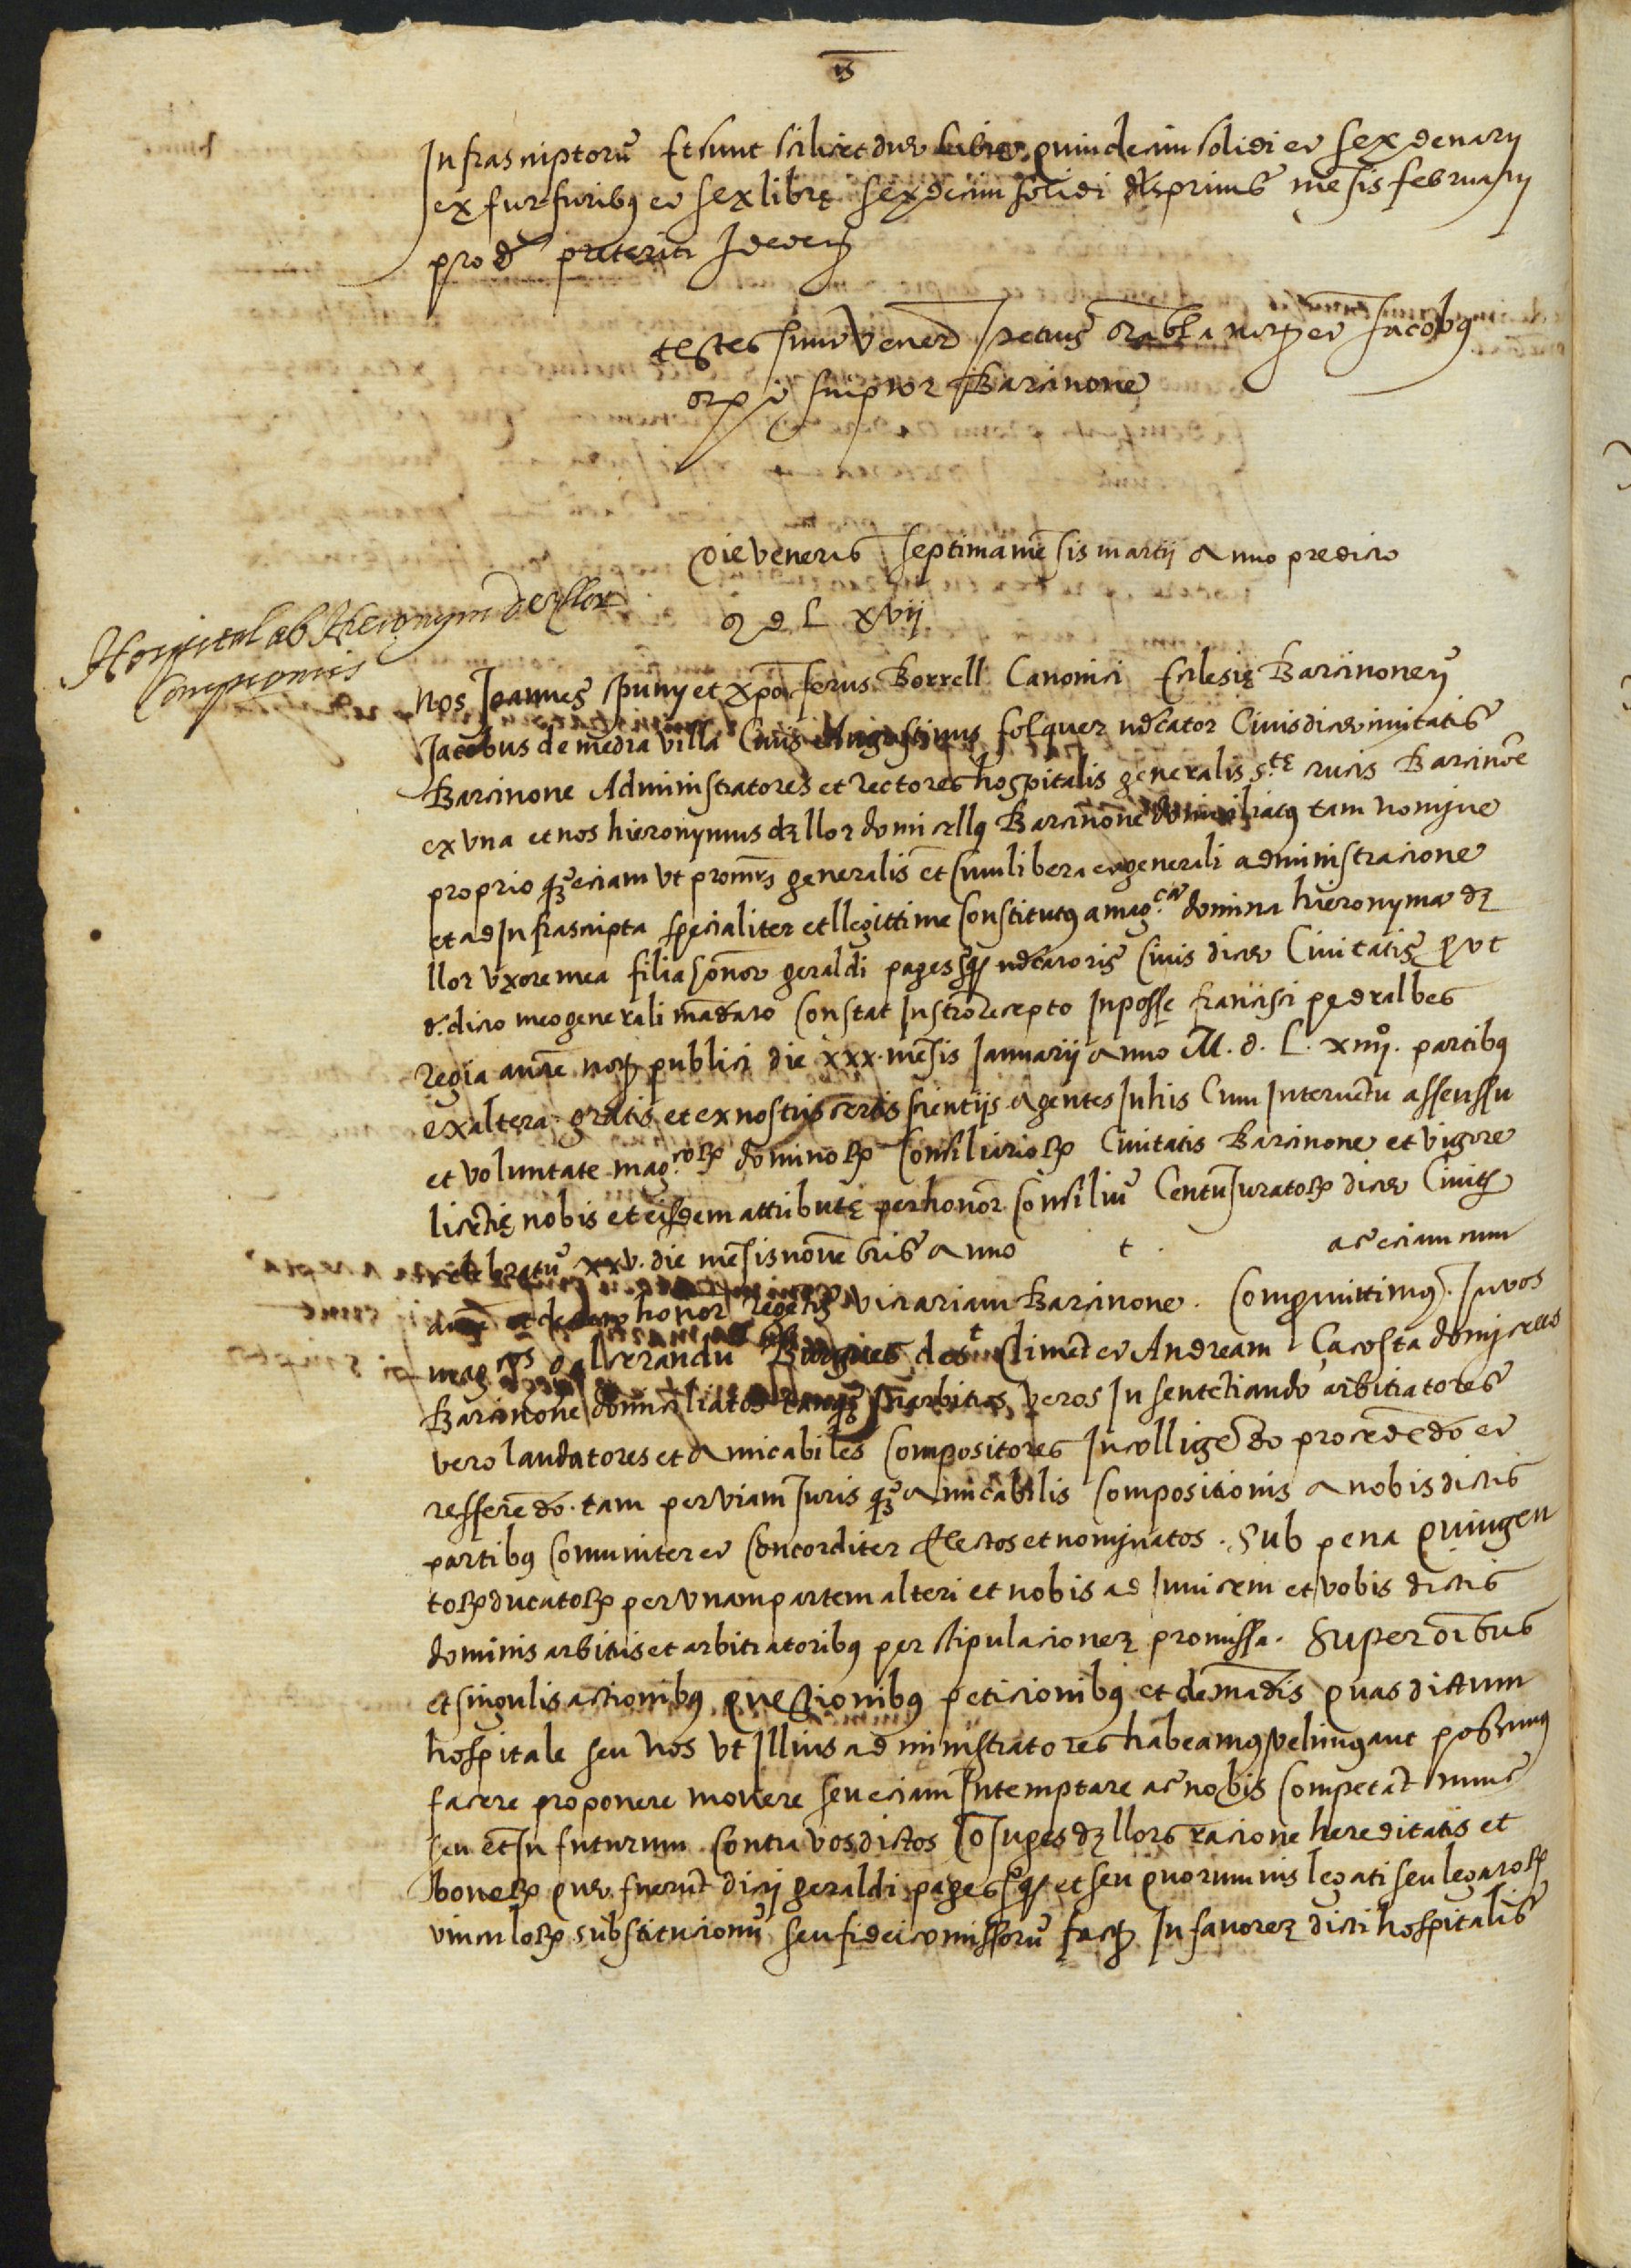 Infrascriptorũ Et sunt scilicet due libre quindecim solidi et sex denarij
ex furfuribꝯ et sex librę sexdecim solidi primis mẽsis februarij
prod preteriti
testes sunt vener petrus not et Jacobꝯ
scriptor Barcinone
Die veneris septima mẽsis martij anno predicto
M d L xvij
Hospital ab Hieronym dezllor
Compromis
Nos Joannes spuny et xpõferus Borrell Canonici Ecclesię Barcinoneñ
Jacobus de media villa Civis Augustinus folquer mcator Civis dicte civitatis
Barcinone Administratores et rectores hospitalis generalis s.tę crucis Barcinoñe
ex vna et nos hieronymus dꝫ llor domicellꝯ Barcinone domiciliatꝯ tam nomine
proprio ꝙ̃ eciam vt procur generalis et cum libera et generali administracione
et ad Infrascripta specialiter et llegittime constitutꝯ a mag.ca domina hieronyma dꝫ
llor vxore mea filia honor geraldi pages ꝙ mcatoris Civis dicte Civitatis prout
d. dicto meo generali mãdato constat Instro recepto In posse francisci pedralbes
Regia aucte not publici die xxx. mẽsis Januarij anno M. d. L. xiiij. partibꝯ
ex altera. gratis et ex nostris certis scientijs agentes In his Cum Interuẽtu assenssu
et voluntate mag.coꝝ dominoꝝ Consiliarioꝝ Civitatis Barcinone et vigore
licẽtię nobis et eisdem attributę per honor. Consiliũ Centũ Juratoꝝ dicte Civitat
celebratũ xxv. die mẽsis novẽbris anno t. ac eciam cum
honor Regẽtis vicariam Barcinone. Compromittimꝯ. In vos
mag.cos dalerrandũ des Climẽt et Andream Çacosta domicellos
Barcinone domiciliatos tanꝙ̃ In arbitros veros In sentẽtiando arbitratores
vero laudatores et amicabiles compositores In colligẽdo procedẽdo et
refferẽdo. tam per viam Juris ꝙ̃ amicabilis compositionis a nobis dictis
partibꝯ comuniter et concorditer ellectos et nominatos. Sub pena quingen
toꝝ ducatoꝝ per vnam partem alteri et nobis ad Invicem et vobis dictis
dominis arbitris et arbitratoribꝯ per stipulacionem promissa. Super oĩbus
et singulis actionibꝯ questionibꝯ peticionibꝯ et demãdis quas dictum
hospitale seu nos vt Illius administratores habeamꝯ velimꝯ aut possumꝯ
facere proponere movere seu eciam Intemptare ac nobis competãt nunc
seu et In futurum contra vos dictos Cõiuges dꝫ llors racione hereditatis et
bonoꝝ que fuerũt dicti geraldi pages ꝙ et seu quorumvis legati seu legatoꝝ
vinculoꝝ substitucionũ seu fideicomissorũ fact In favorem dicti hospitalis